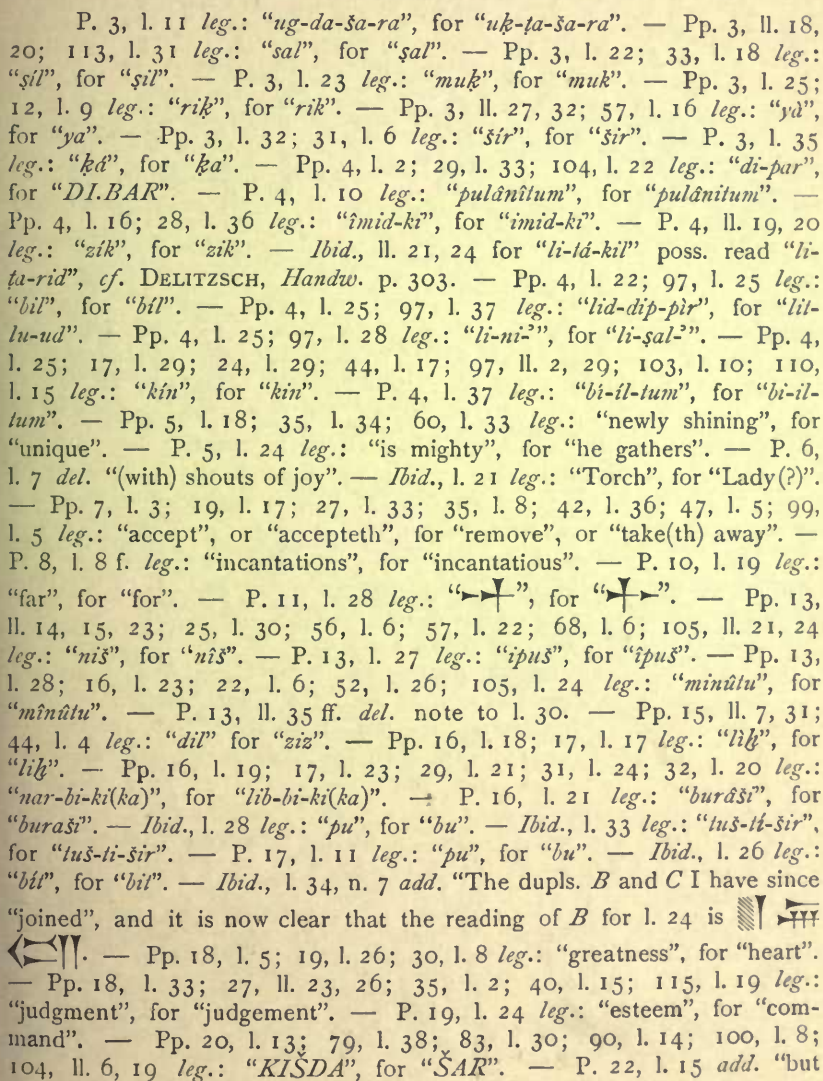 P. 3, l. 11 leg.: “ug-da-ša-ra”, for “uḳ-ṭa-ša-ra”. — Pp. 3, ll. 18,
20; 113, l. 31 leg.: “sal”, for “ṣal”. — Pp. 3, l. 22; 33, l. 18 leg.:
“ṣíl”, for “ṣil”. — P. 3, l. 23 leg.: “muḳ”, for “muk”. — Pp. 3, l. 25;
12, l. 9 leg.: “riḳ”, for “rik”. — Pp. 3, ll. 27, 32; 57, l. 16 leg.: “yà”,
for “ya”. — Pp. 3, l. 32; 31, l. 6 leg.: “šír”, for “šir”. — P. 3, l. 35
leg.: “ḳá”, for “ḳa”. — Pp. 4, l. 2; 29, l. 33; 104, l. 22 leg.: “di-par”,
for “DI.BAR”. — P. 4, l. 10 leg.: “pulânîtum”, for “pulânitum”. —
Pp. 4, l. 16; 28, l. 36 leg.: “îmid-ki”, for “imid-ki”. — P. 4, ll. 19, 20
leg.: “zík”, for “zik”. — Ibid., ll. 21, 24 for “li-tá-kil” poss. read “li-
ṭa-rid”, cf. DELITZSCH, Handw. p. 303. — Pp. 4, l. 22; 97, l. 25 leg.:
“bil”, for “bíl”. — Pp. 4, l. 25; 97, l. 37 leg.: “lid-dip-pìr”, for “lit-
lu-ud”. — Pp. 4, l. 25; 97, l. 28 leg.: “li-ni-ʾ”, for “li-ṣal-ʾ”. — Pp. 4,
l. 25; 17, l. 29; 24, l. 29; 44, l. 17; 97, ll. 2, 29; 103, l. 10; 110,
l. 15 leg.: “kín”, for “kin”. — P. 4, l. 37 leg.: “bi-íl-tum”, for “bi-il-
tum”. — Pp. 5, l. 18; 35, l. 34; 60, l. 33 leg.: “newly shining”, for
“unique”. — P. 5, l. 24 leg.: “is mighty”, for “he gathers”. — P. 6,
l. 7 del. “(with) shouts of joy”. — Ibid., l. 21 leg.: “Torch”, for “Lady(?)”.
— Pp. 7, l. 3; 19, l. 17; 27, l. 33; 35, l. 8; 42, l. 36; 47, l. 5; 99,
l. 5 leg.: “accept”, or “accepteth”, for “remove”, or “take(th) away”. —
P. 8, l. 8 f. leg.: “incantations”, for “incantatious”. — P. 10, l. 19 leg.:
“far”, for “for”. — P. 11, l. 28 leg.: “”, for “”. — Pp. 13,
ll. 14, 15, 23; 25, l. 30; 56, l. 6; 57, l. 22; 68, l. 6; 105, ll. 21, 24
leg.: “niš”, for “nîš”. — P. 13, l. 27 leg.: “ipuš”, for “îpuš”. — Pp. 13,
l. 28; 16, l. 23; 22, l. 6; 52, l. 26; 105, l. 24 leg.: “minûtu”, for
“mînûtu”. — P. 13, ll. 35 ff. del. note to l. 30. — Pp. 15, ll. 7, 31;
44, l. 4 leg.: “dil” for “ziz”. — Pp. 16, l. 18; 17, l. 17 leg.: “liḫ”, for
“liḫ”. — Pp. 16, l. 19; 17, l. 23; 29, l. 21; 31, l. 24; 32, l. 20 leg.:
“nar-bi-ki(ka)”, for “lib-bi-ki(ka)”. — P. 16, l. 21 leg.: “burâši”, for
“buraši”. — Ibid., l. 28 leg.: “pu”, for “bu”. — Ibid., l. 33 leg.: “tuš-tí-šir”,
for “tuš-ti-šir”. — P. 17, l. 11 leg.: “pu”, for “bu”. — Ibid., l. 26 leg.:
“bít”, for “bit”. — Ibid., l. 34, n. 7 add. “The dupls. B and C I have since
“joined”, and it is now clear that the reading of B for l. 24 is
— Pp. 18, l. 5; 19, l. 26; 30, l. 8 leg.: “greatness”, for “heart”.
— Pp. 18, l. 33; 27, ll. 23, 26; 35, l. 2; 40, l. 15; 115, l. 19 leg.:
“judgment”, for “judgement”. — P. 19, l. 24 leg.: “esteem”, for “com-
mand”. — Pp. 20, l. 13; 79, l. 38; 83, l. 30; 90, l. 14; 100, l. 8;
104, ll. 6, 19 leg.: “KIŠDA”, for “ŠAR”. — P. 22, l. 15 add. “but